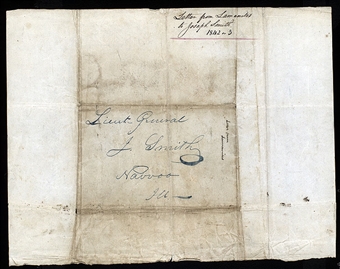 Letter from Lamanites
to Joseph Smith
1842-3
Lieut-General
J Smith
Nauvoo
Ill